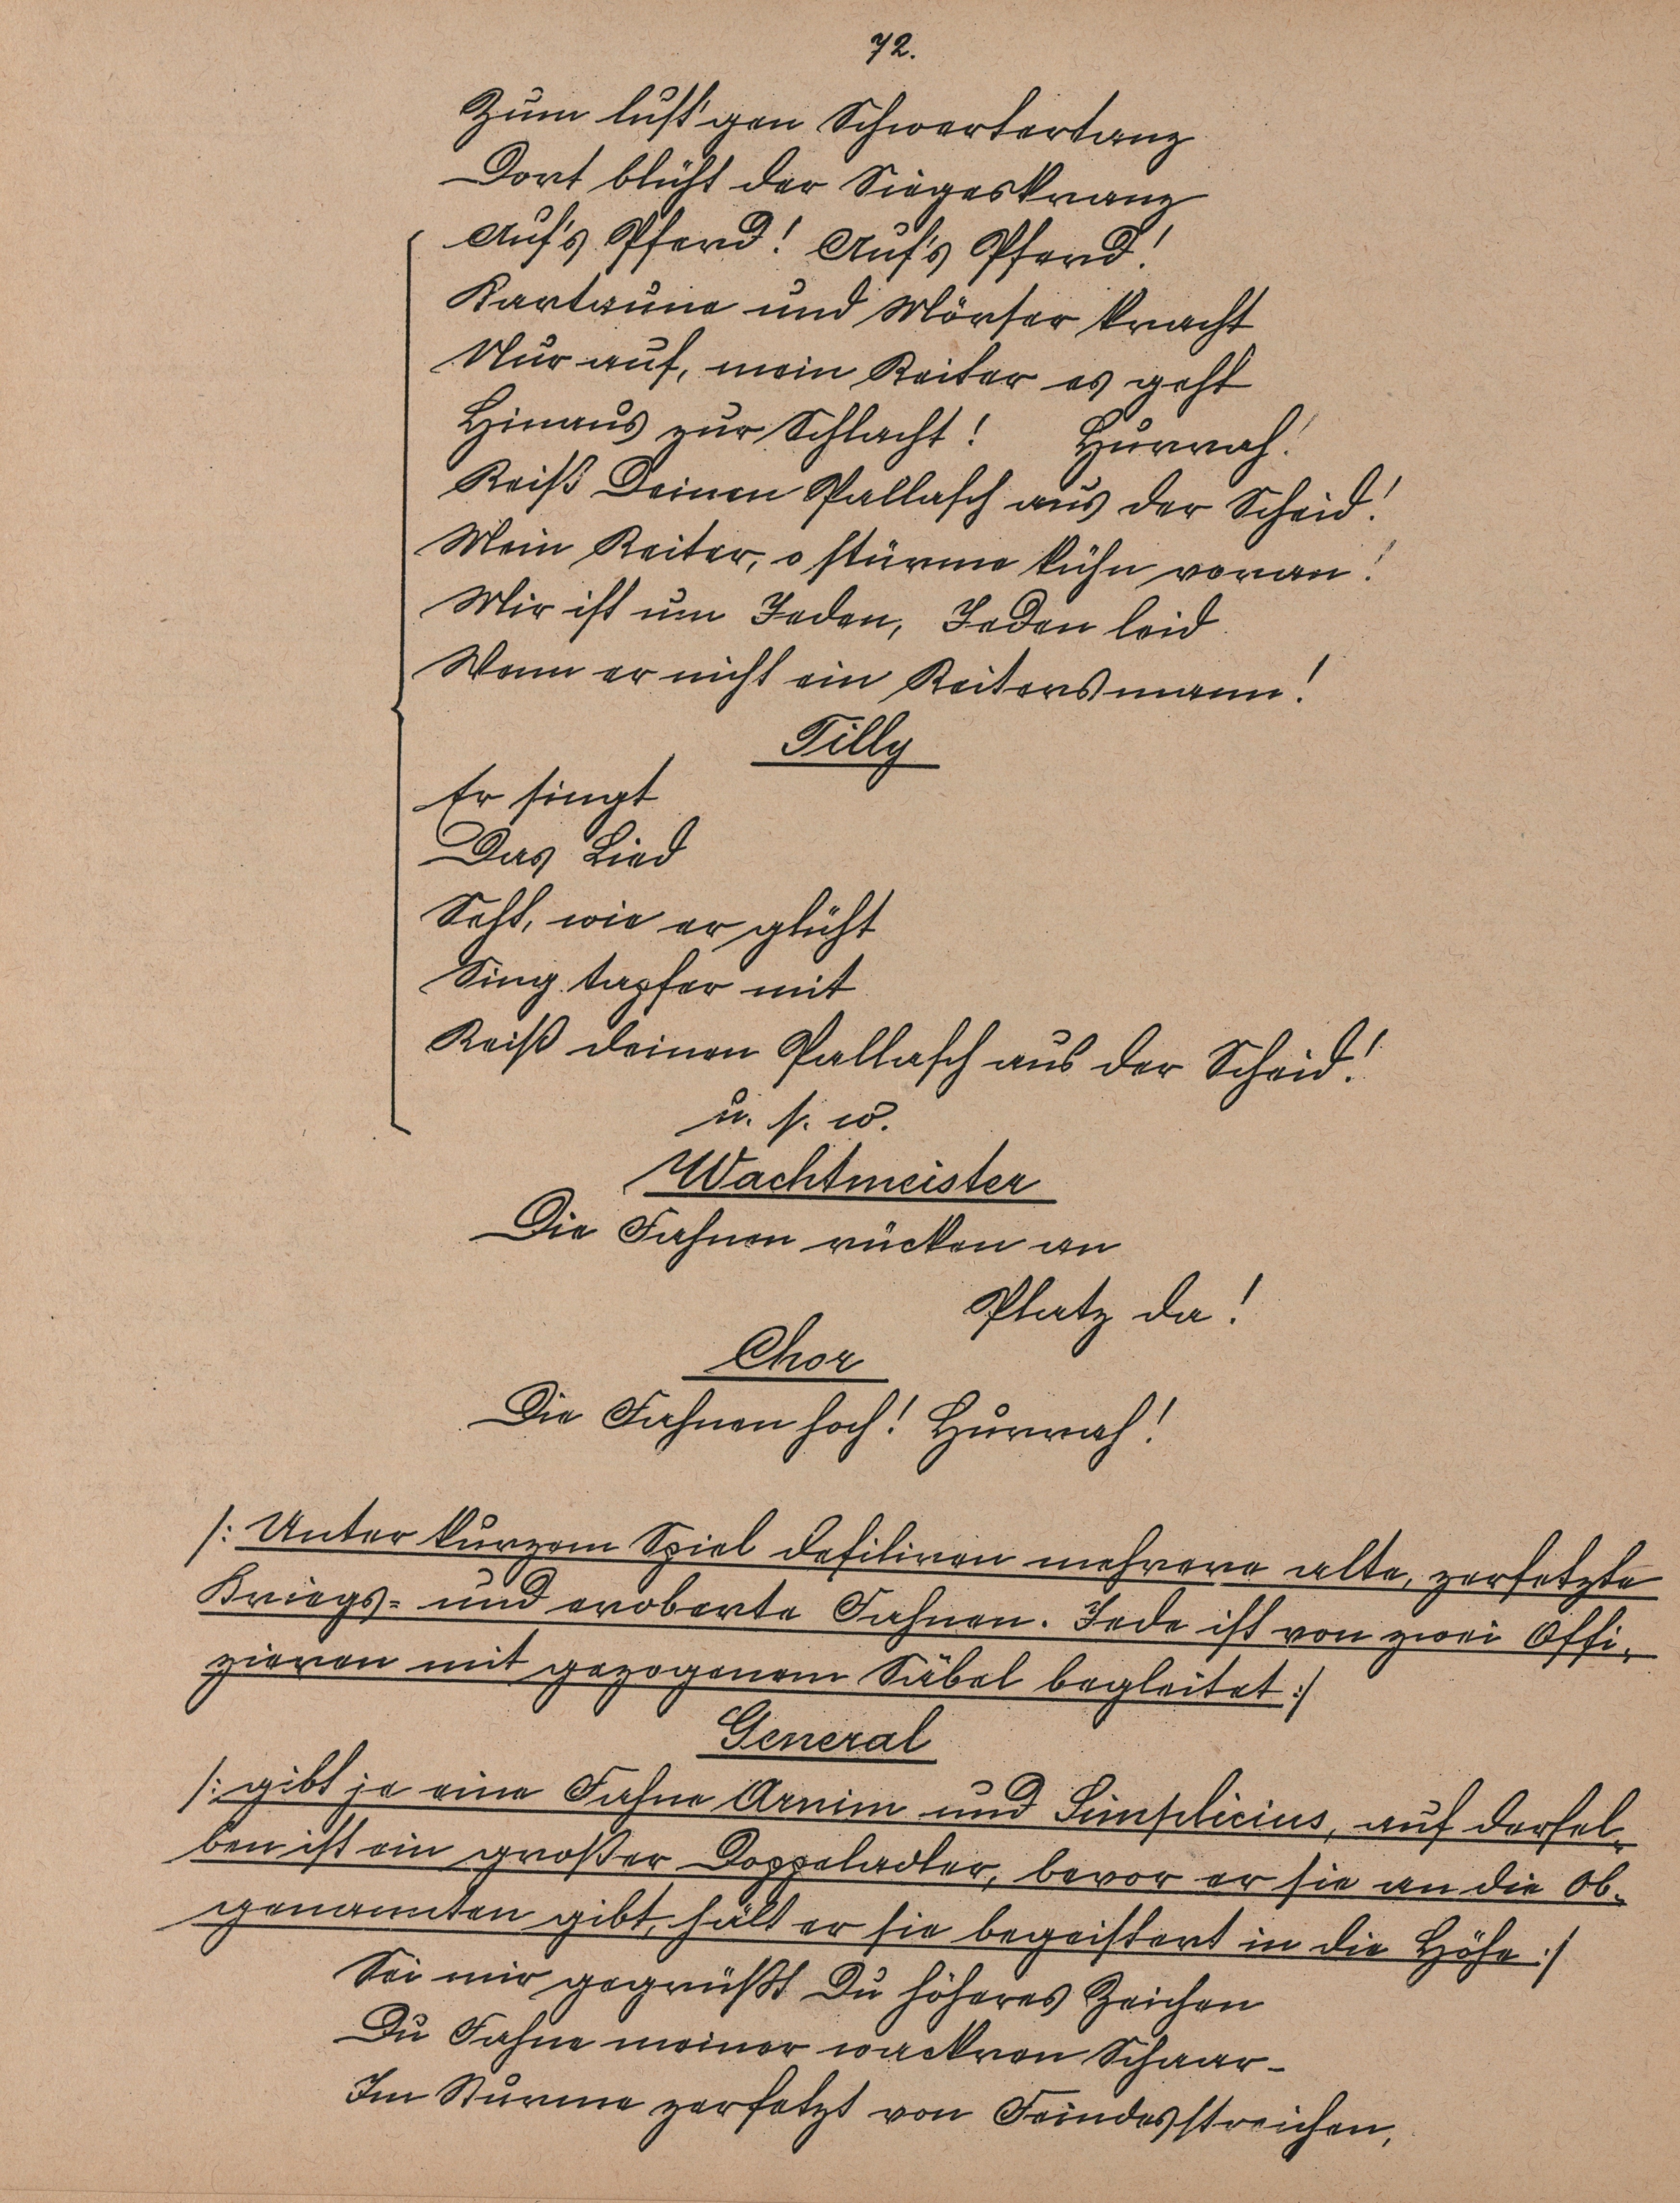 72.
Zum lust'gen Schwertertanz
Dort blüht der Siegeskranz
Auf's Pferd! Auf's Pferd!
Kartaune und Mörser kracht
Nur auf, mein Reiter es geht
Hinaus zur Schlacht! Hurrah!
Reiß Deinen Pallasch aus der Scheid!
Mein Reiter, o stürme kühn voran!
Mir ist um Jeden, Jeden leid
Wenn er nicht ein Reitersmann!
Tilly
Er singt
Das Lied
Seht, wie er glüht
Sing tapfer mit
Reiß deinen Pallasch aus der Scheid!
u. s. w.
Wachtmeister
Die Fahnen rücken an
Platz da!
Chor
Die Fahnen hoch! Hurrah!
/: Unter kurzem Spiel defiliren mehrere alte, zerfetzte
Kriegs- und eroberte Fahnen. Jede ist von zwei Offi-
zieren mit gezogenem Säbel begleitet :/
General
/: gibt je eine Fahne Arnim und Simplicius, auf dersel-
ben ist ein großer Doppeladler, bevor er sie an die Ob-
genannten gibt, hält er sie begeistert in die Höhe :/
Sei mir gegrüßt Du höheres Zeichen
Du Fahne meiner wackren Schaar-
Im Sturme zerfetzt von Feindesstreichen,